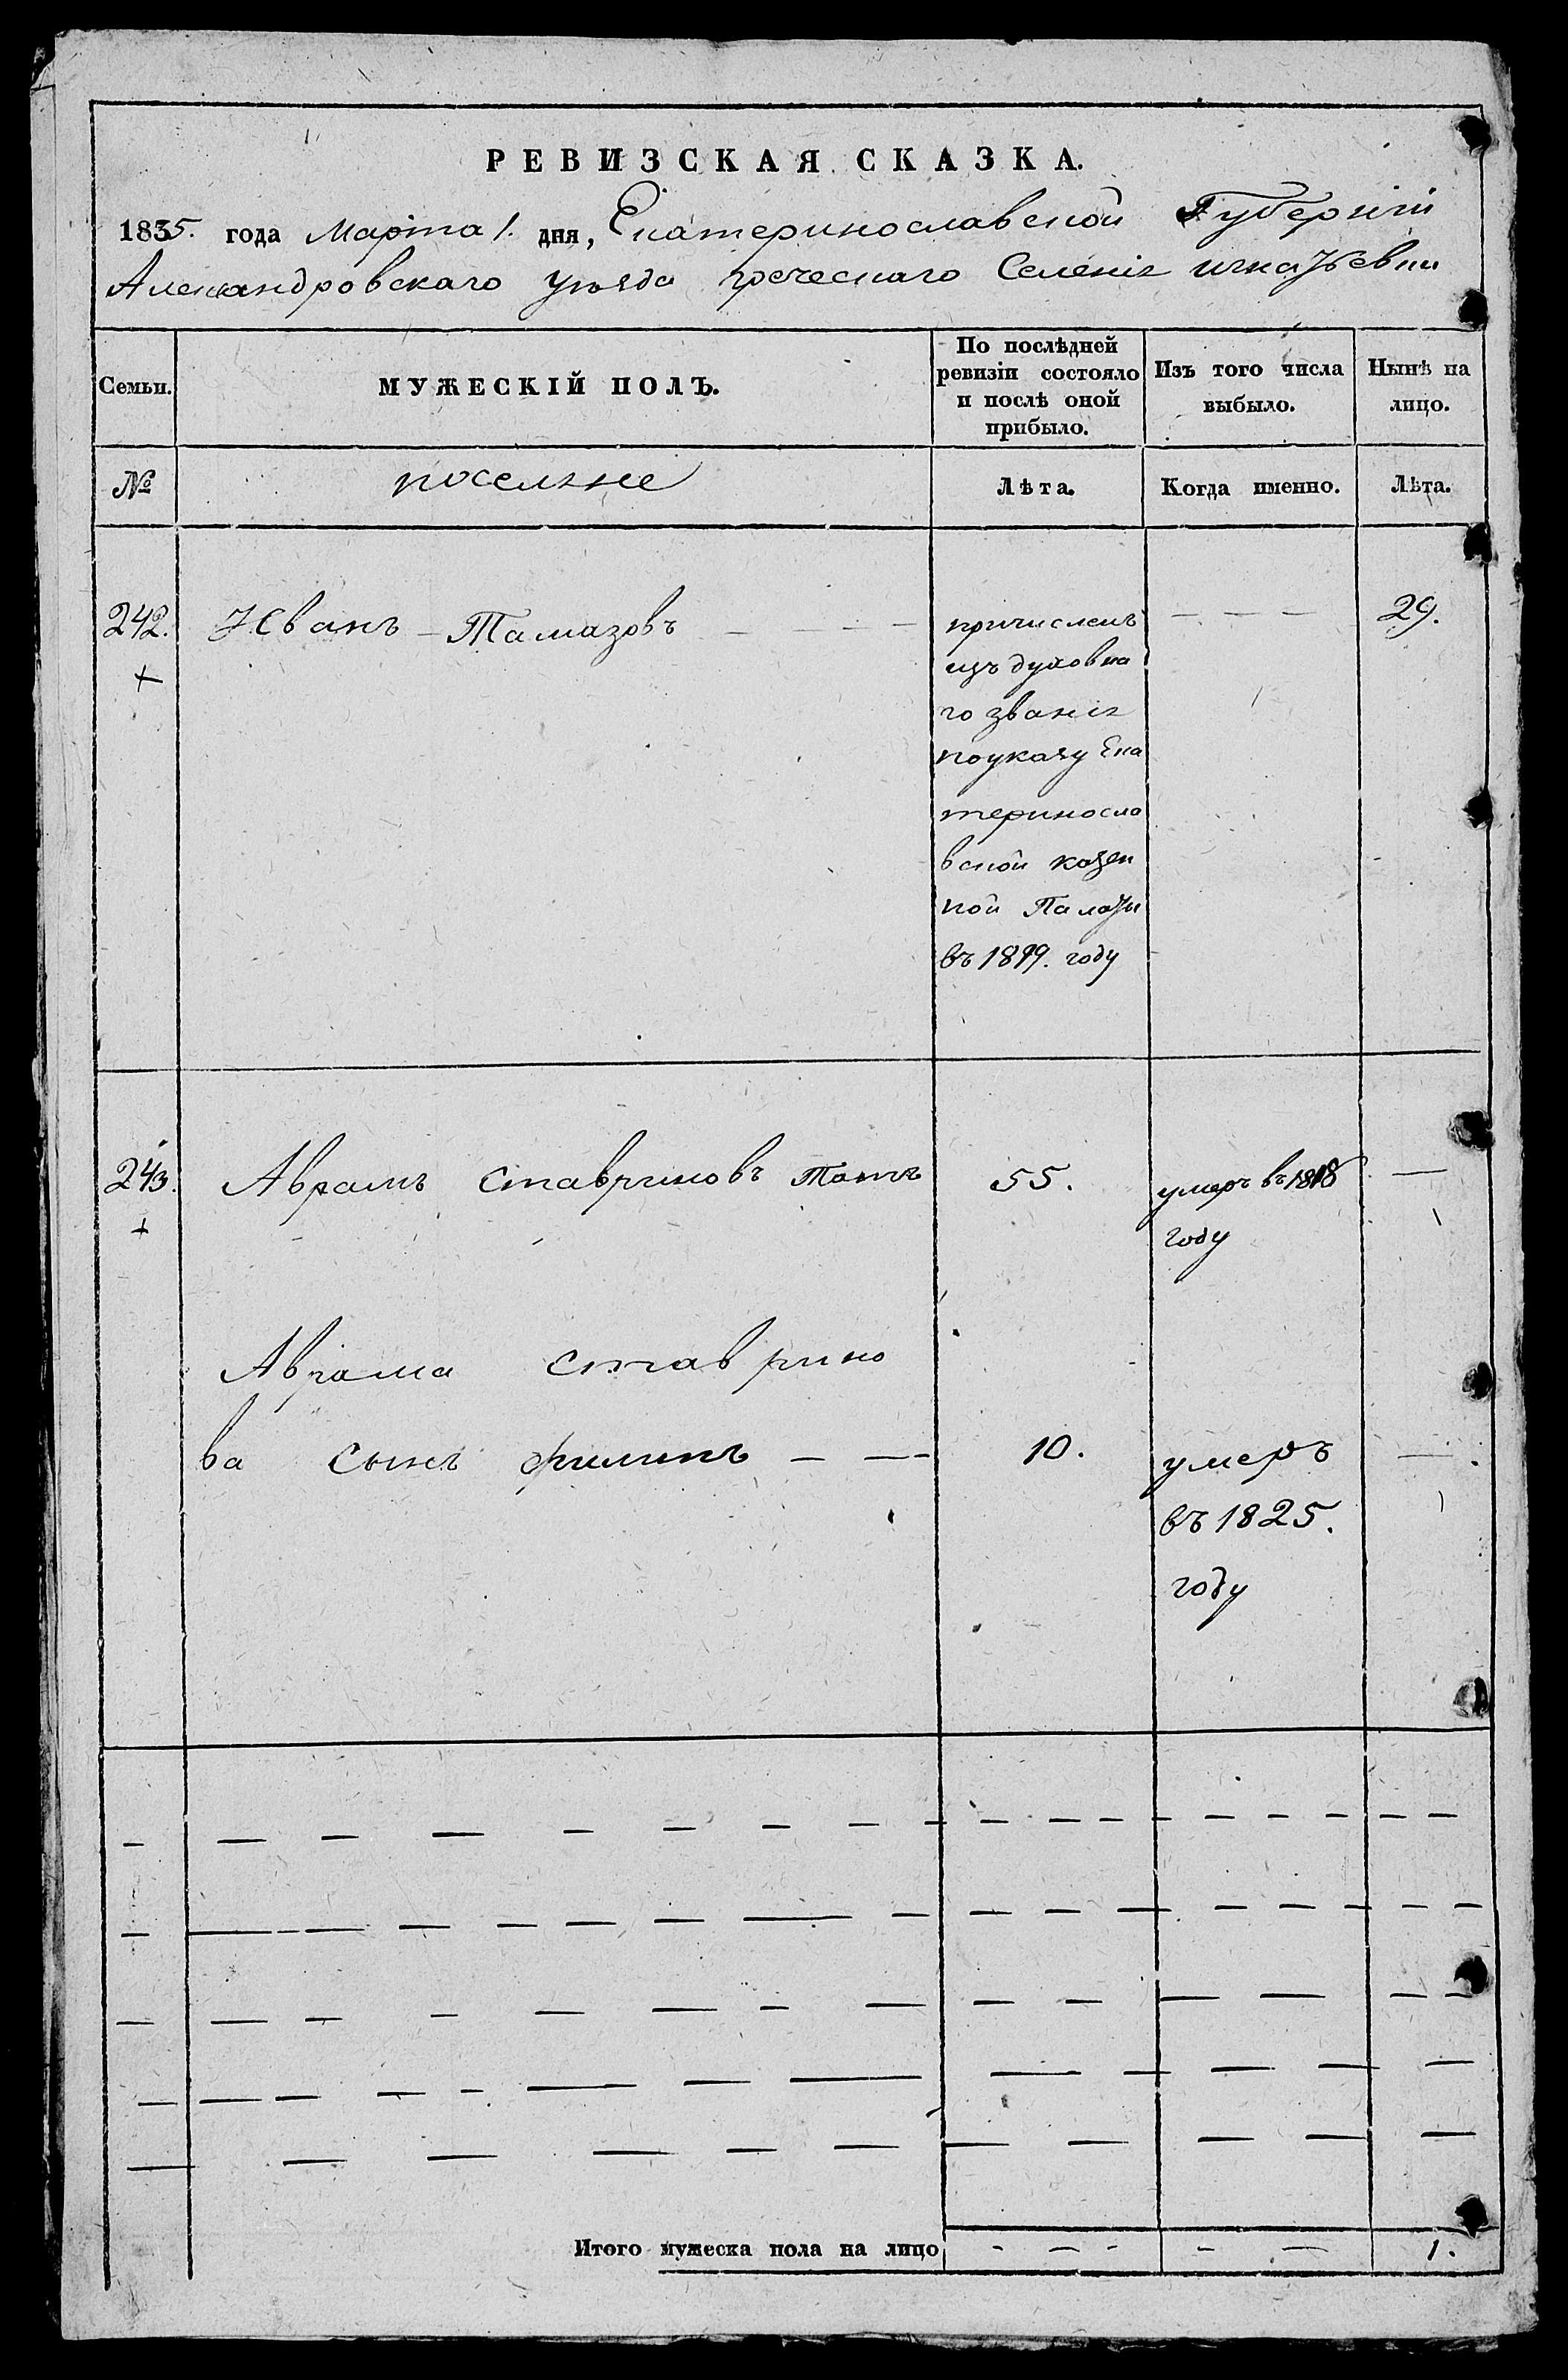 РЕВИЗСКАЯ СКАЗКА.
1835. года Марта 1. дня, Екатеринославской Губерніи
Александровскаго уѣзда греческаго Селенія игнатьевки
Семьи.
МУЖЕСКІЙ ПОЛЪ.
По послѣдней
ревизіи состояло
и послѣ оной
прибыло.
Изъ того числа
выбыло.
Нынѣ на
лицо.
№
поселяне
Лѣта.
Когда именно.
Лѣта.
242. Иванъ Талмазовъ
причисленъ
изъ духовна
го званія
поуказу Ека
териносла
вской казен
ной Палаты
въ году
29.
243. Аврамъ Ставриновъ 55. умеръ въ 1818
году
Аврама Ставрино
ва сынъ филипъ 10. умеръ
въ 1825.
году
Итого мужеска пола на лицо 1.